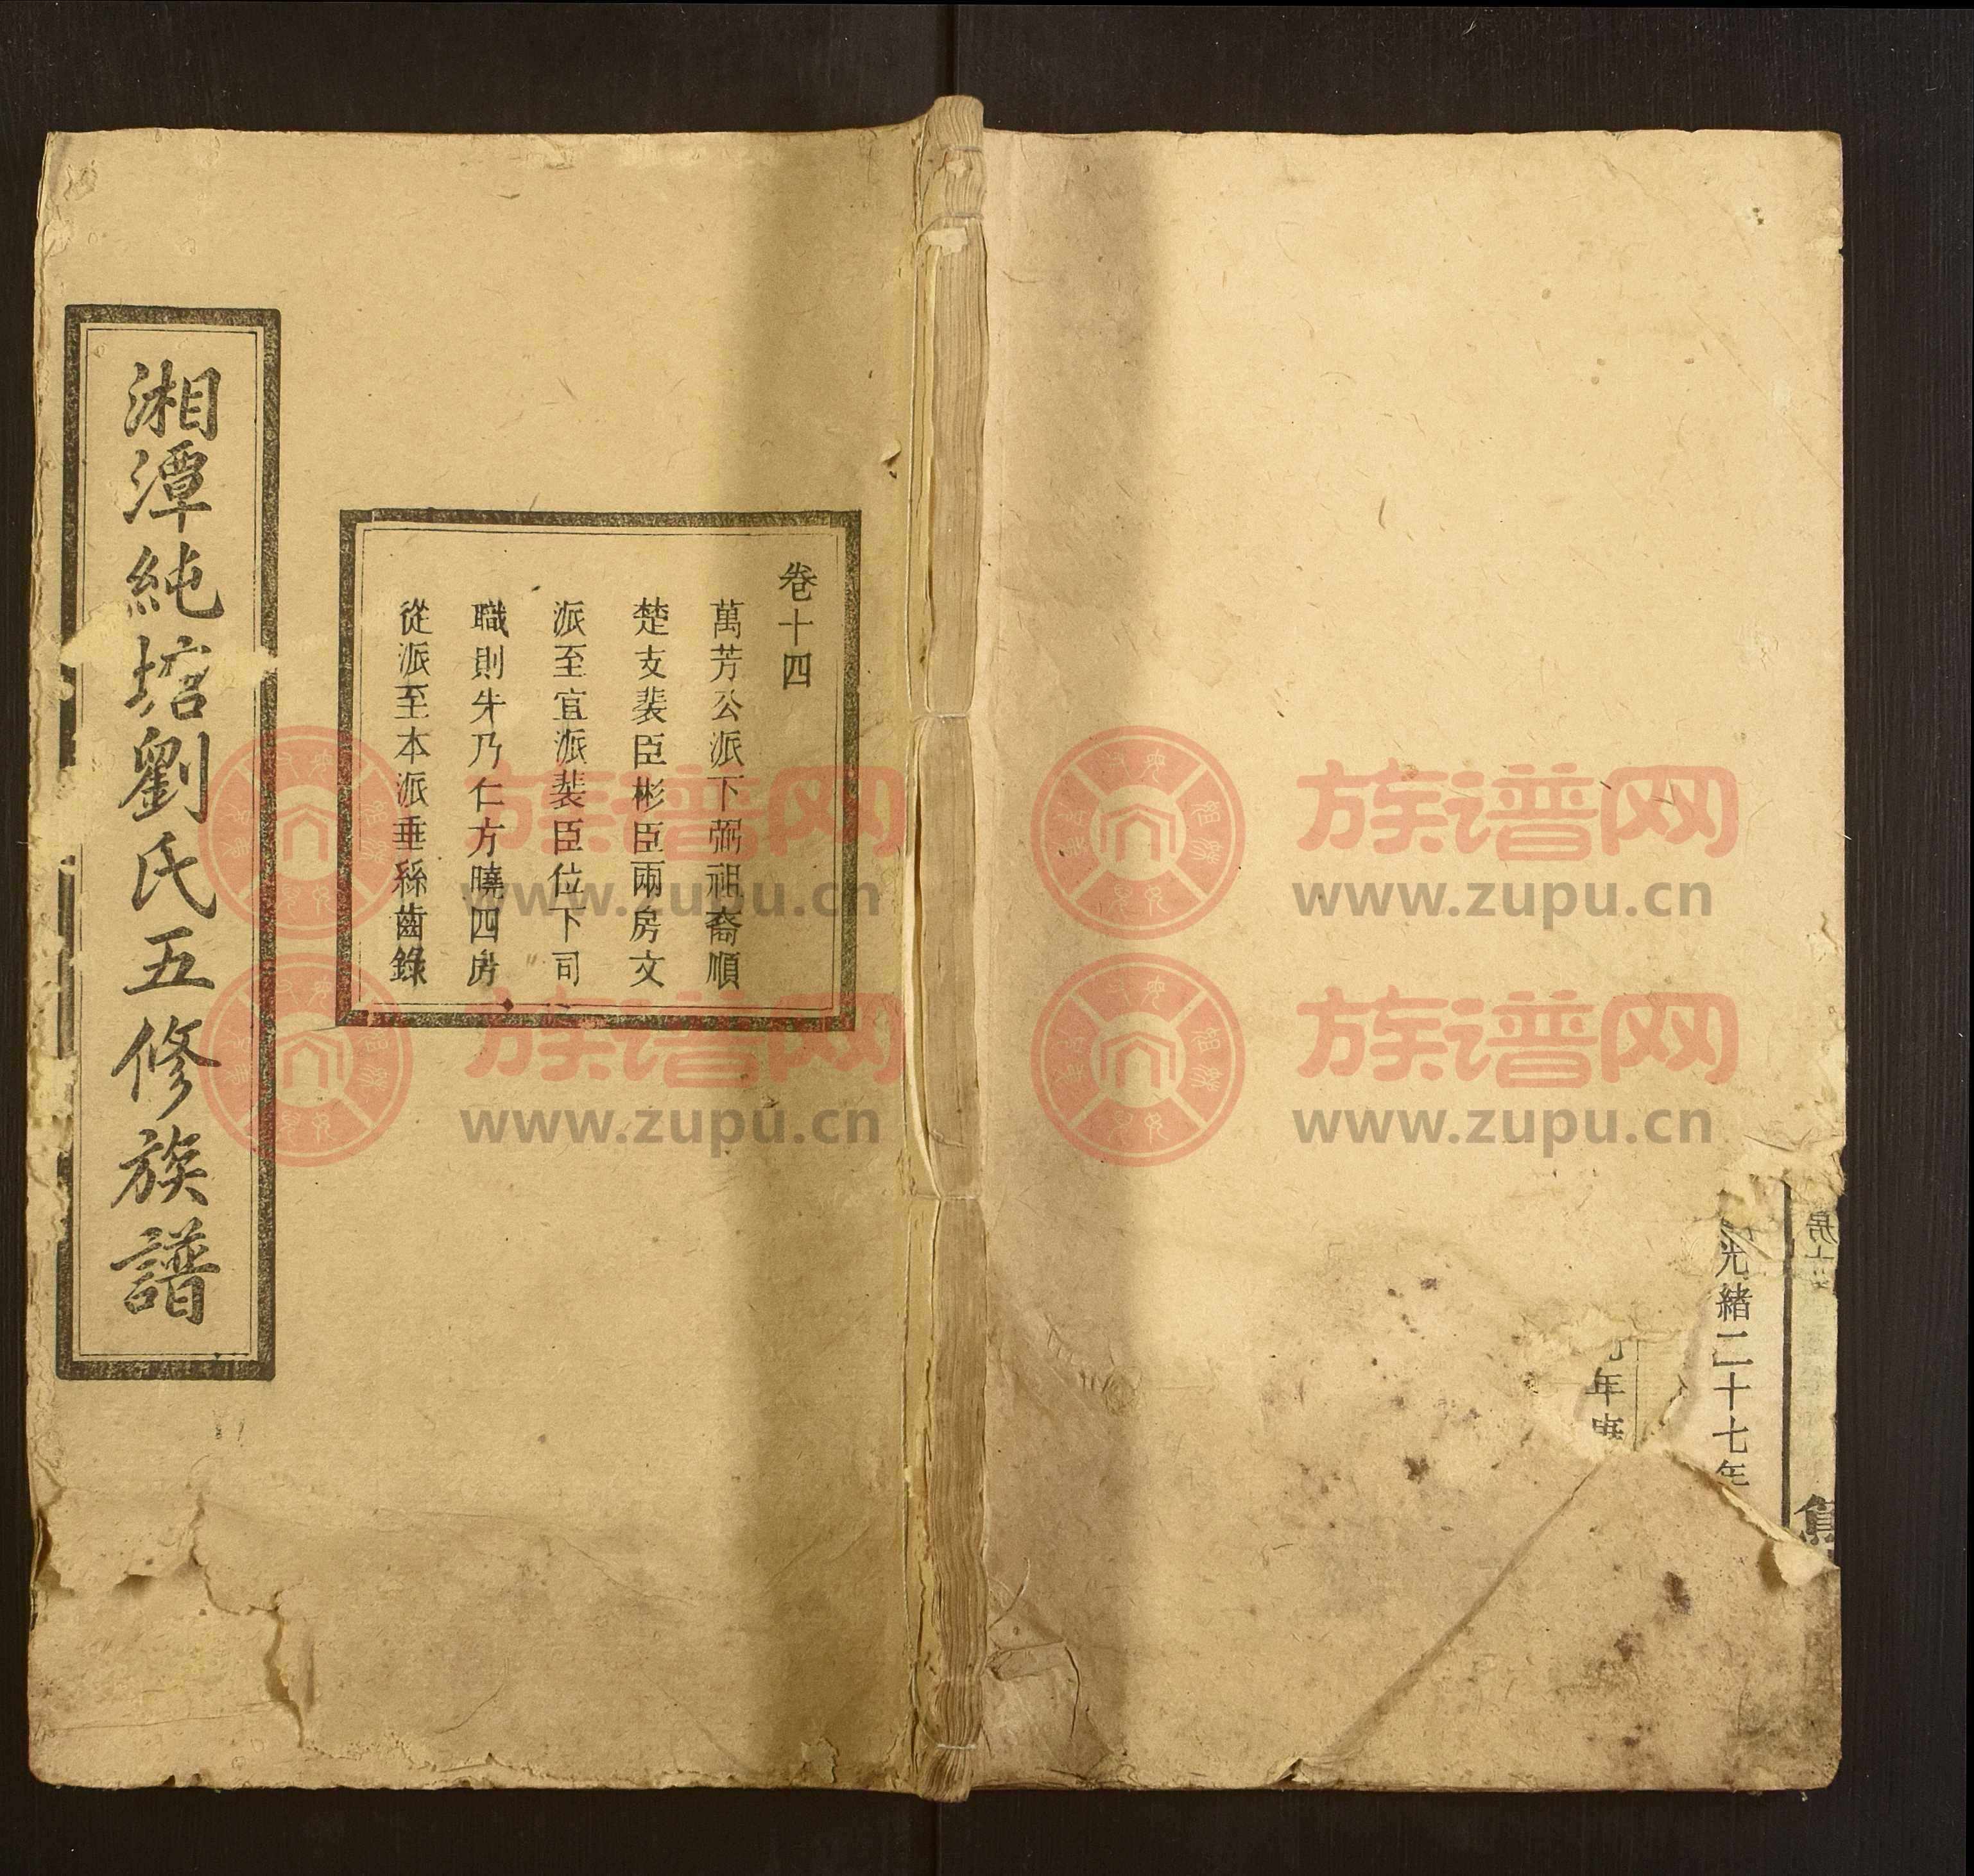 湘潭純塘劉氏五修族譜
卷十四
萬芳公派下弼祖裔順
楚支裴臣彬臣兩房文
派至宜派裴臣位下司
職則失乃仁方曉四房
從派至本派垂絲齒錄
光緒二十七年
年
族谱网
www.zupu.cn
族谱网
www.zupu.cn
族谱网
www.zupu.cn
族谱网
www.zupu.cn